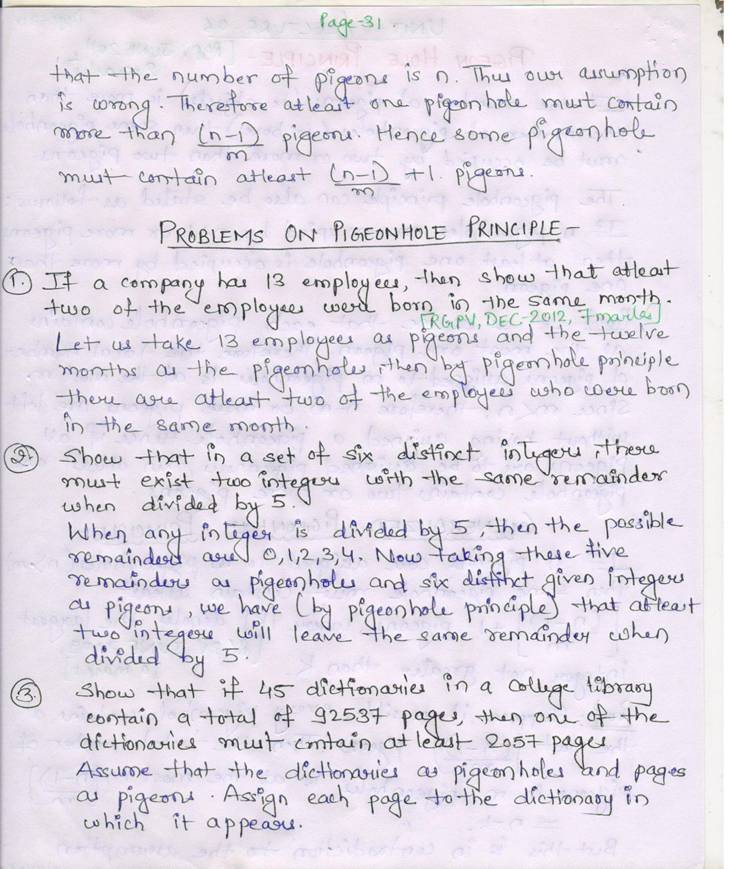 Page-31.
that the number of pigeons is n. Thus our assumption
is wrong. Therefore atleast one pigeonhole must contain
more than (n-1)/m pigeons. Hence some pigeonhole
must contain atleast (n-1)/m +1. pigeons.
PROBLEMS ON PIGEONHOLE PRINCIPLE -
1. If a company has 13 employees, then show that atleast
two of the employees were born in the same month.
[RGPV, DEC-2012, 7 marks]
Let us take 13 employees as pigeons and the twelve
months as the pigeonholes, then by pigeonhole principle
there are atleast two of the employees who were born
in the same month.
2. Show that in a set of six distinct integers, there
must exist two integers with the same remainder
when divided by 5.
When any integer is divided by 5, then the possible
remainders are 0,1,2,3,4. Now taking these five
remainders as pigeonholes and six distinct given integers
as pigeons, we have (by pigeonhole principle) that atleast
two integers will leave the same remainder when
divided by 5.
3. Show that if 45 dictionaries in a college library
contain a total of 92537 pages, then one of the
dictionaries must contain at least 2057 pages
Assume that the dictionaries as pigeonholes and pages
as pigeons. Assign each page to the dictionary in
which it appears.